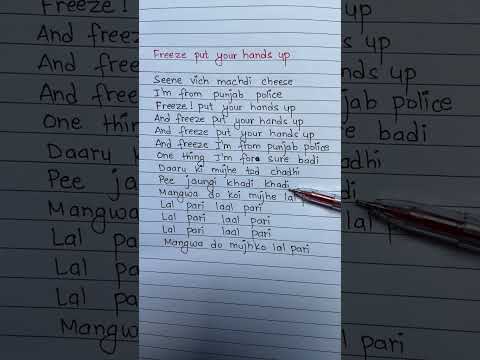 Freeze put your hands up
Seene vich machdi cheese
I'm from punjab police
Freeze! put your hands up
And freeze put your hands up
And freeze put your hands up
And freeze I'm from punjab police
One thing I'm for sure badi
Daaru ki mujhe tod chadhi
Pee jaungi khadi khadi
Mangwa do koi mujhe lal
Lal pari laal pari
Lal pari laal pari
Lal pari laal pari
Mangwa do mujhko lal pari